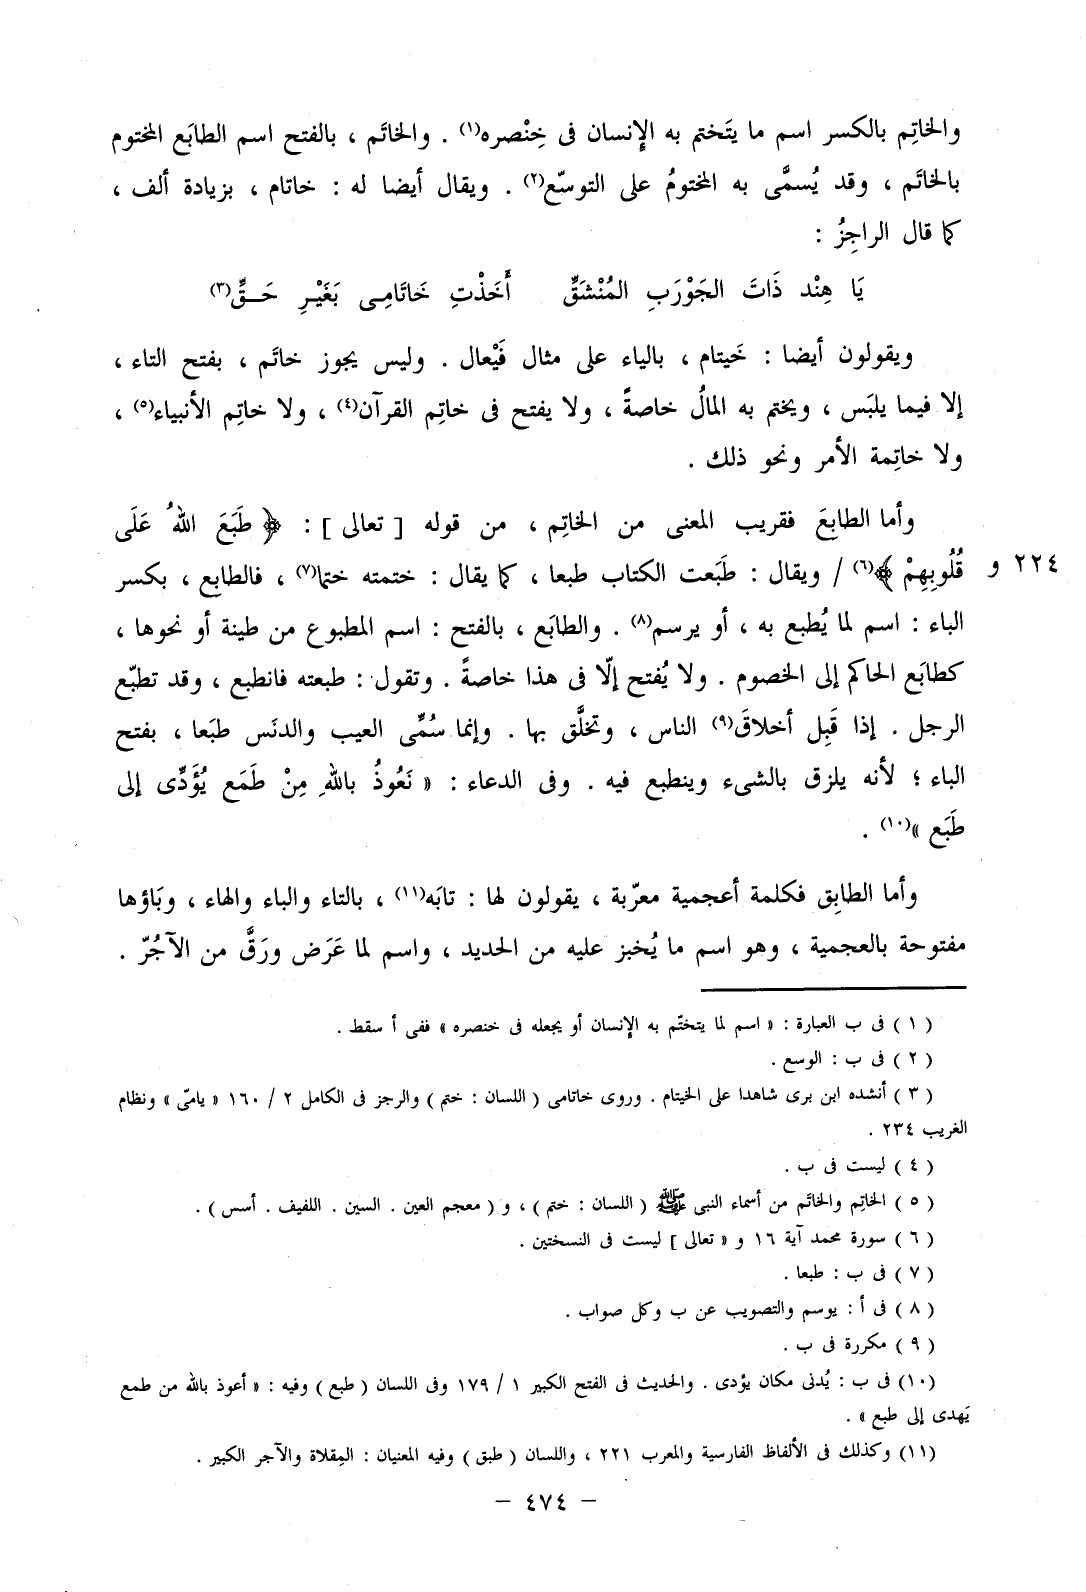 والخاتِم بالكسر اسم ما يتَختم به الإنسان فى خِنْصره(١) . والخاتَم ، بالفتح اسم الطابَع المختوم
بالخاتَم ، وقد يُسمَّى به المختومُ على التوسّع(٢) . ويقال أيضا له : خاتام ، بزيادة ألف ،
كما قال الراجِزُ :
يَا هِنْد ذَاتَ الجَوْرَبِ المُنْشَقِّ أَخَذْتِ خَاتَامِى بَغَيْرِ حَــقِّ(٣)
ويقولون أيضا : خَيتام ، بالياء على مثال فَيْعال . وليس يجوز خاتَم ، بفتح التاء ،
إلا فيما يلبَس ، ويختم به المالُ خاصةً ، ولا يفتح فى خاتِم القرآن(٤) ، ولا خاتِم الأنبياء(٥) ،
ولا خاتِمة الأمر ونحو ذلك .
وأما الطابِعَ فقريب المعنى من الخاتِم ، من قوله [ تعالى ] : ﴿ طَبَعَ اللهُ عَلَى
٢٢٤ و قُلُوبِهِمْ ﴾(٦) / ويقال : طبَعت الكتاب طبعا ، كما يقال : ختمته ختما(٧) ، فالطابِع ، بكسر
الباء : اسم لما يُطبع به ، أو يرسم(٨) . والطابَع ، بالفتح : اسم المطبوع من طينة أو نحوها ،
كطابَع الحاكم إلى الخصوم . ولا يُفتح إلّا فى هذا خاصةً . وتقول : طبعته فانطبع ، وقد تطبّع
الرجل . إذا قَبِل أخلاقَ(٩) الناس ، وتخلَّق بها . وإنما سُمِّى العيب والدنَس طبَعا ، بفتح
الباء ؛ لأنه يلزق بالشىء وينطبع فيه . وفى الدعاء : « نَعُوذُ باللهِ مِنْ طَمَع يُؤَدِّى إلى
طَبَع »(١٠) .
وأما الطابِق فكلمة أعجمية معرّبة ، يقولون لها : تابَه(١١) ، بالتاء والباء والهاء ، وبَاؤها
مفتوحة بالعجمية ، وهو اسم ما يُخبز عليه من الحديد ، واسم لما عَرَض ورَقَّ من الآجُرّ .
( ١ ) فى ب العبارة : « اسم لما يتختّم به الإنسان أو يجعله فى خنصره » ففى أ سقط .
( ٢ ) فى ب : الوسع .
( ٣ ) أنشده ابن برى شاهدا على الخيتام . وروى خاتامى ( اللسان : ختم ) والرجز فى الكامل ٢ / ١٦٠ « يامىّ » ونظام
الغريب ٢٣٤ .
( ٤ ) ليست فى ب .
( ٥ ) الخاتِم والخاتَم من أسماء النبى ﷺ ( اللسان : ختم ) ، و ( معجم العين . السين . اللفيف . أسس ) .
( ٦ ) سورة محمد آية ١٦ و « تعالى ] ليست فى النسختين .
( ٧ ) فى ب : طبعا .
( ٨ ) فى أ : يوسم والتصويب عن ب وكل صواب .
( ٩ ) مكررة فى ب .
(١٠) فى ب : يُدنى مكان يؤدى . والحديث فى الفتح الكبير ١ / ١٧٩ وفى اللسان ( طبع ) وفيه : « أعوذ بالله من طمع
يَهدى إلى طبع » .
(١١) وكذلك فى الألفاظ الفارسية والمعرب ٢٢١ ، واللسان ( طبق ) وفيه المعنيان : المِقلاة والآجر الكبير .
– ٤٧٤ –